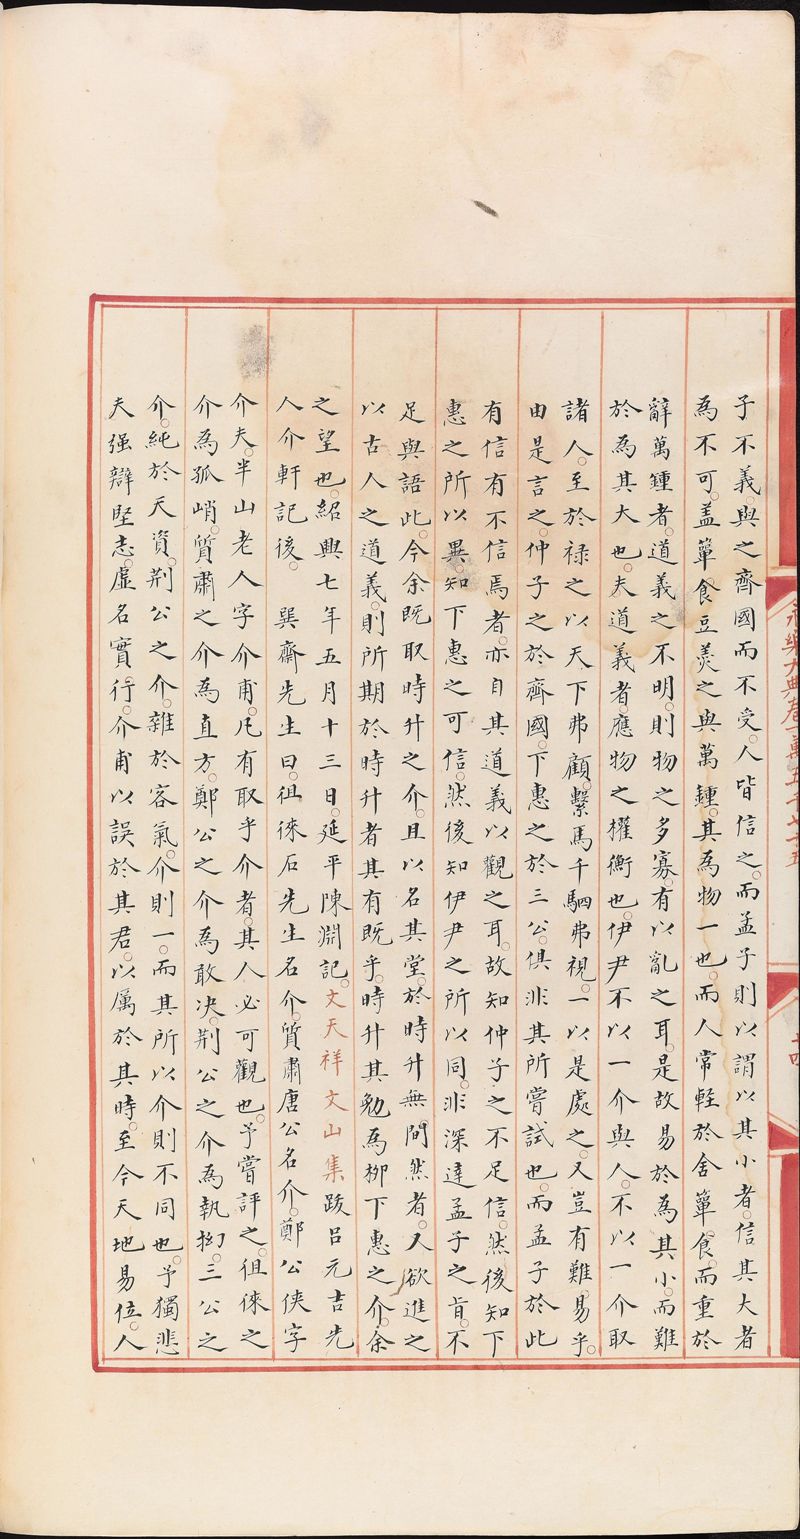 子不義與之齊國而不受人皆信之而孟子則以謂以其小者信其大者
為不可盖簞食豆羹之與萬鍾其為物一也而人常輕於舍簞食而重於
辭萬鍾者道義之不明則物之多寡有以亂之耳是故易於為其小而難
於為其大也夫道義者應物之權衡也伊尹不以一介與人不以一介取
諸人至於禄之以天下弗顧繫馬千駟弗視一以是處之又豈有難易乎
由是言之仲子之於齊國下惠之於三公俱非其所嘗試也而孟子於此
有信有不信焉者亦自其道義以觀之耳故知仲子之不足信然後知下
惠之所以異知下惠之可信然後知伊尹之所以同非深達孟子之旨不
足與語此今余既取時升之介且以名其堂於時升無間然者又欲進之
以古人之道義則所期於時升者其有既乎時升其勉為柳下惠之介余
之望也紹興七年五月十三日延平陳淵記文天祥文山集跋呂元吉先
人介軒記後 巽齋先生曰徂徠石先生名介質肅唐公名介鄭公俠字
介夫半山老人字介甫凡有取乎介者其人必可觀也予嘗評之徂徠之
介為孤峭質肅之介為直方鄭公之介為敢决荆公之介為執拗三公之
介純於天資荆公之介雜於客氣介則一而其所以介則不同也予獨悲
夫强辯堅志虚名實行介甫以誤於其君以厲於其時至今天地易位人
永樂大典卷一萬五千七十五
十四